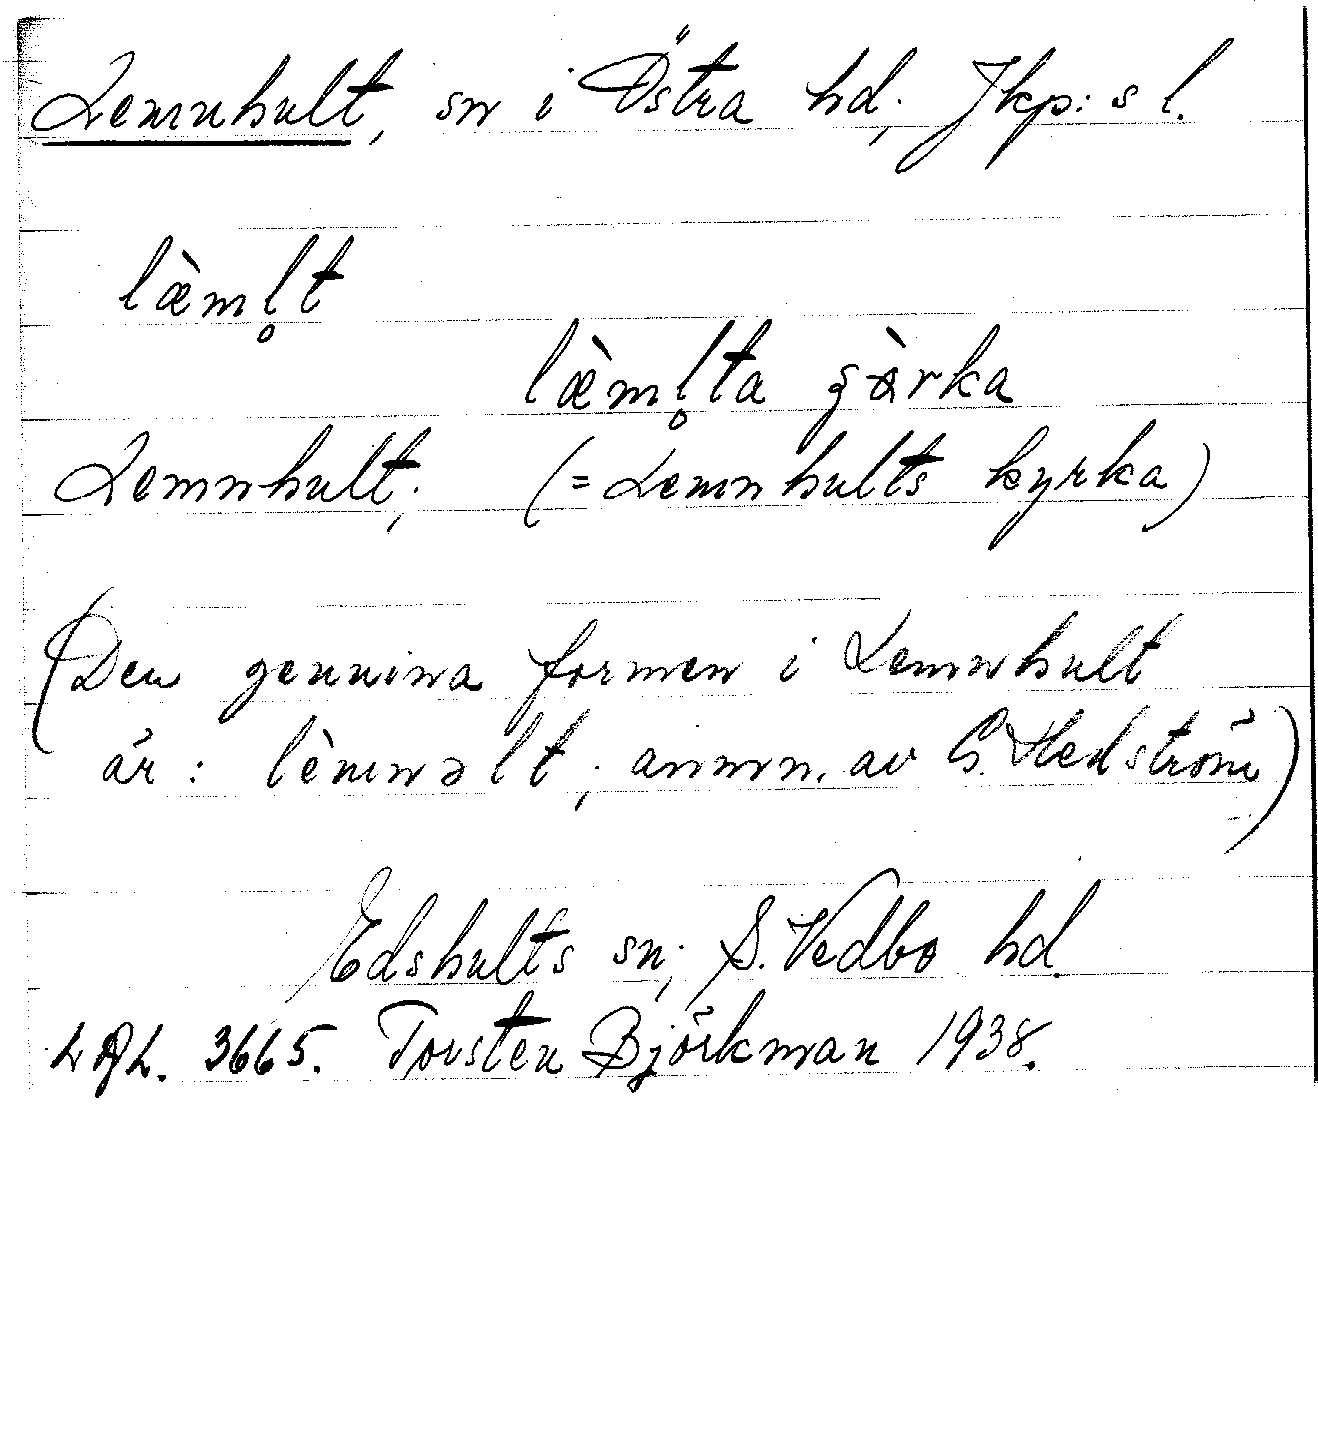 Lemnhult, sn i Östra hd, Jkp:s l.
læ̀ml̥t
læ̀ml̥ta
Lemnhult; (= Lemnhults kyrka)
(Den genuina formen i Lemnhult
är: lèmnəlt, anmn. av G. Hedström)
Edshults sn; S. Vedbo hd.
3665. Torsten Björkman 1938.